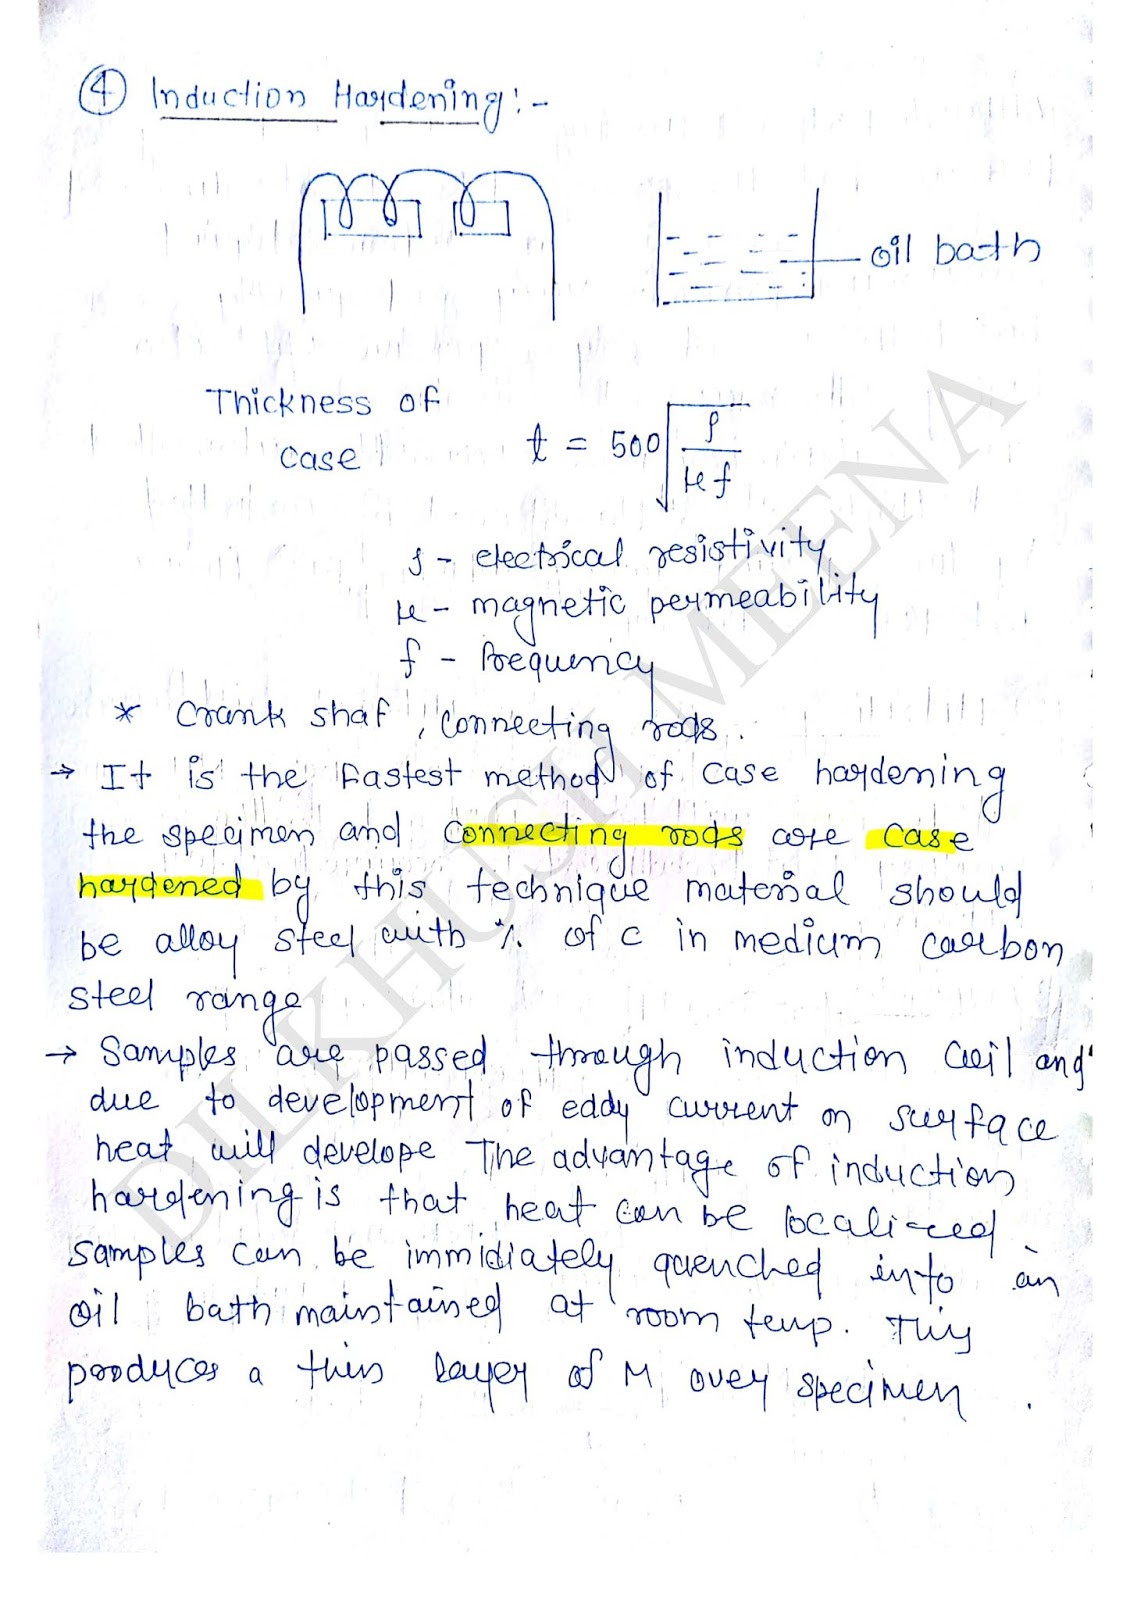 ④ Induction Hardening:-
oil bath
Thickness of
case
t = 500√(ρ/μf)
ρ - electrical resistivity
μ - magnetic permeability
f - frequency
* Crank shaf, connecting rods.
→ It is the fastest method of case hardening
the specimen and connecting rods are case
hardened by this technique material should
be alloy steel with % of c in medium carbon
steel range
→ Samples are passed through induction coil and
due to development of eddy current on surface
heat will develope The advantage of induction
hardening is that heat can be localized.
Samples can be immidiately quenched into an
oil bath maintained at room temp. This
produces a thin layer of M over specimen.
DILKHUSH MEENA